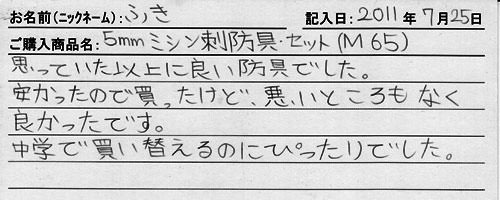 お名前(ニックネーム): ふき 記入日: 2011 年 7月 25日
ご購入商品名: 5mmミシン刺防具・セット(M65)
思っていた以上に良い防具でした。
安かったので買ったけど、悪いところもなく
良かったです。
中学で買い替えるのにぴったりでした。